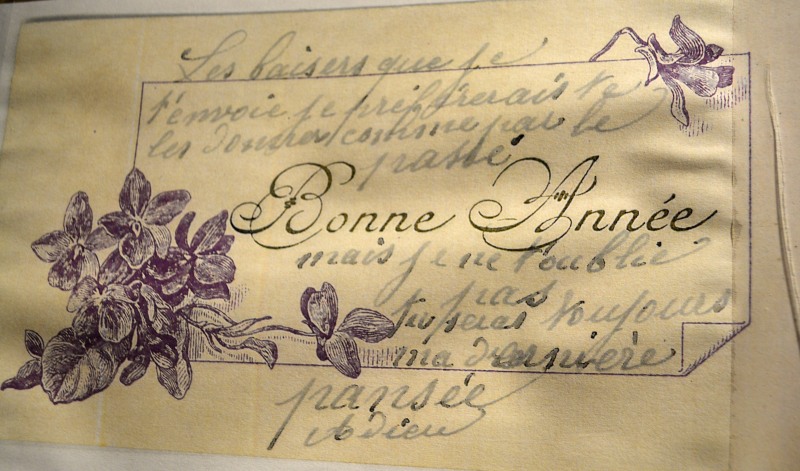 Les baisers que je
t'envoie je préfèrerais te
les donner comme par le
passé
Bonne Année
mais je ne t'oublie
pas
tu seras toujours
ma dernière
pansée
Adieu